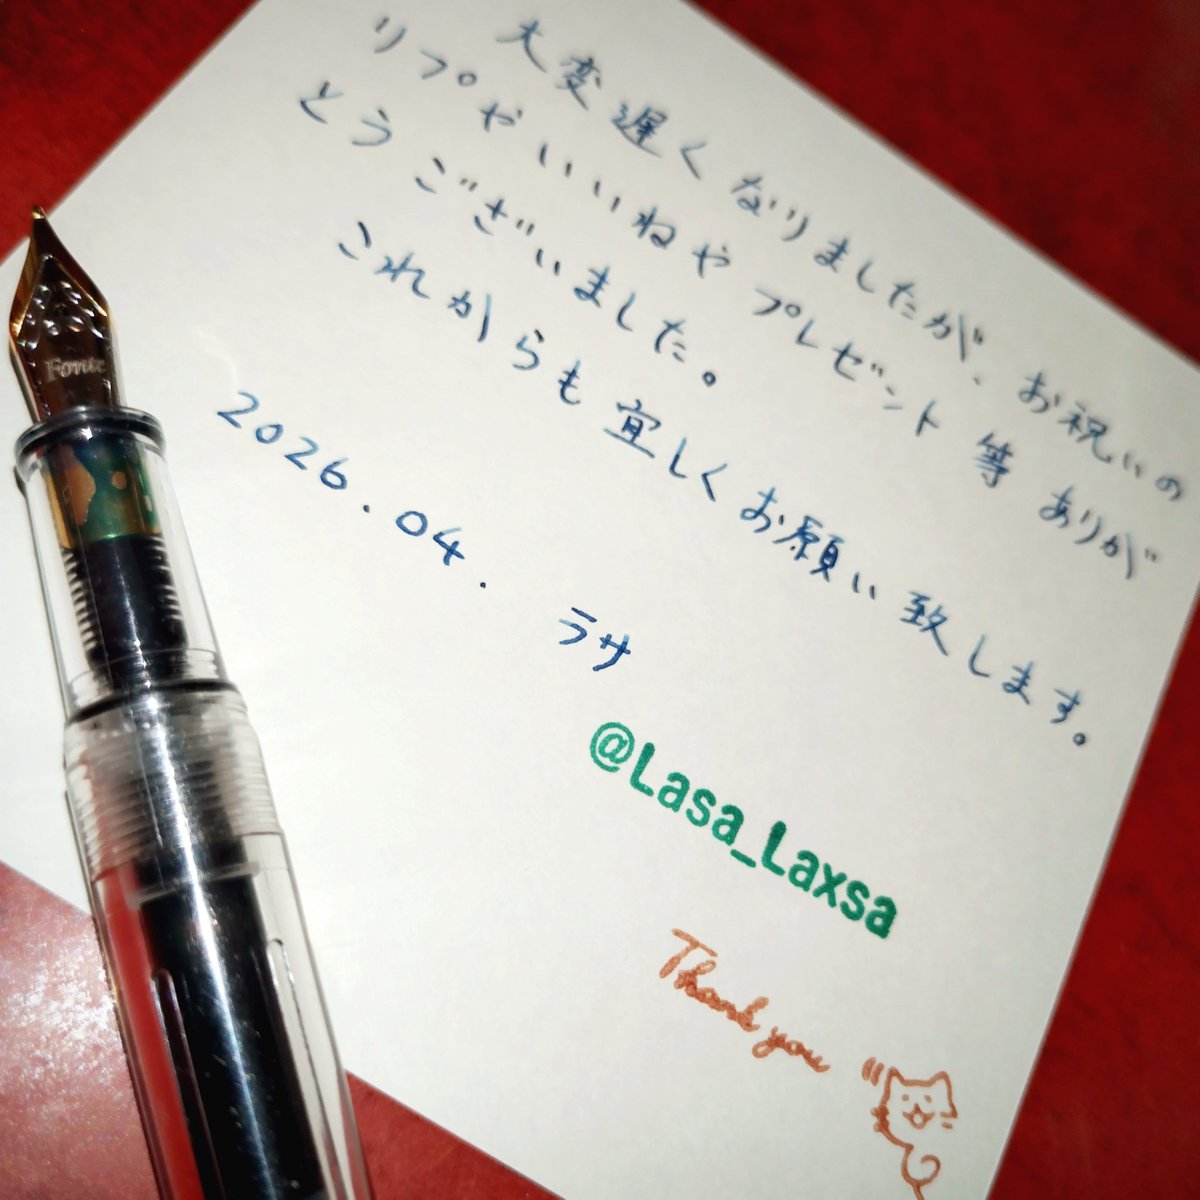 大変遅くなりましたが、お祝いの
リプやいいねやプレゼント等ありが
とうございました。
これからも宜しくお願い致します。
2026.04. ラサ
@Lasa_Laxsa
Thank you
Fonte